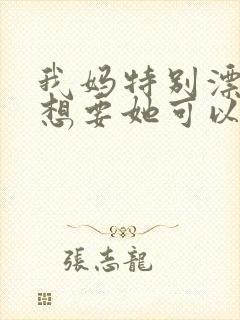 我妈特别漂
想要她可以
張志龍